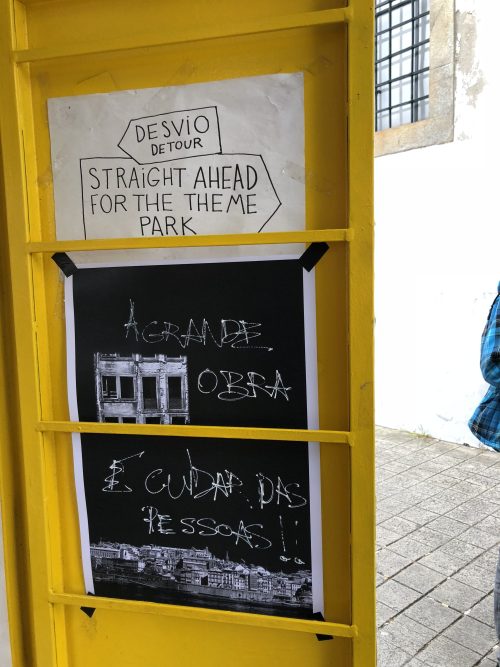 DESVIO
DETOUR
STRAIGHT AHEAD
FOR THE THEME
PARK
A GRANDE
OBRA
É CUIDAR DAS
PESSOAS!!